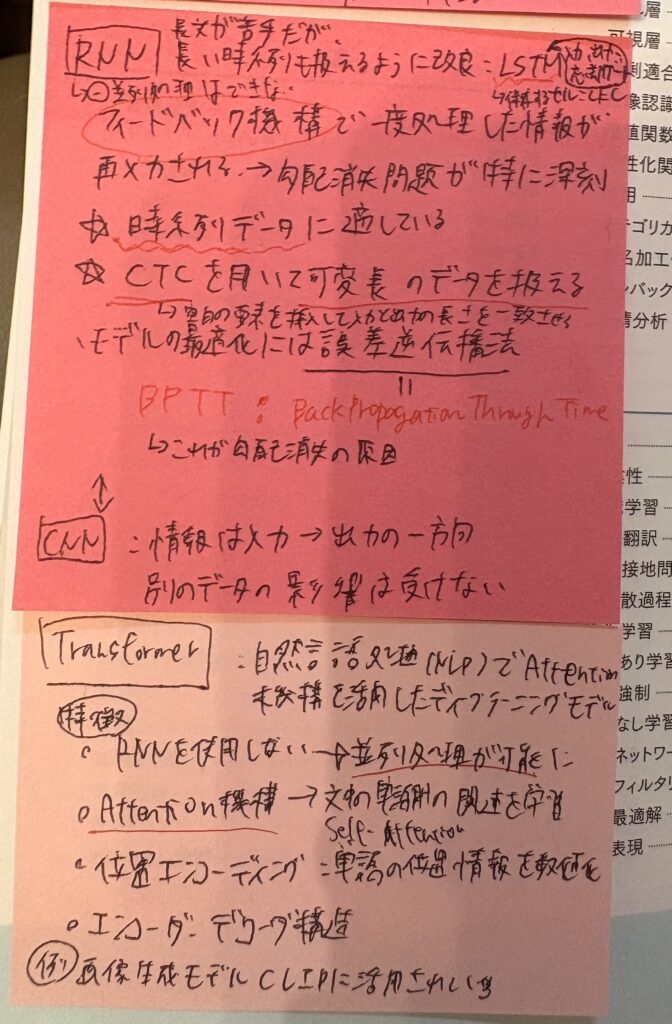 RNN
長文が苦手だが、
長い時系列も扱えるように改良：LSTM
入力、出力
↳○並列処理はできない
フィードバック機構で一度処理した情報が
再入力される→勾配消失問題が特に深刻
☆ 時系列データに適している
☆ CTCを用いて可変長のデータを扱える
↳空白の要素を挿入して入力と出力の長さを一致させる
、モデルの最適化には誤差逆伝播法
BPTT : BackPropagation Through Time
↳これが勾配消失の原因
↕
CNN
：情報は入力→出力の一方向
別のデータの影響は受けない
Transformer
：自然言語処理(NLP)でAttention
機構を活用したディープラーニングモデル
特徴
• RNNを使用しない→並列処理が可能に
• Attention機構→文中の単語間の関連を学習
Self-Attention
• 位置エンコーディング：単語の位置情報を数値化
• エンコーダ・デコーダ構造
例) 画像生成モデルCLIPに活用されている
層
可視層
適合
像認識
値関数
性化関
用
テゴリカ
名加工
ンバック
情分析
性
学習
翻訳
接地問
散過程
学習
あり学習
強制
なし学習
ネットワー
フィルタリ
最適解
表現